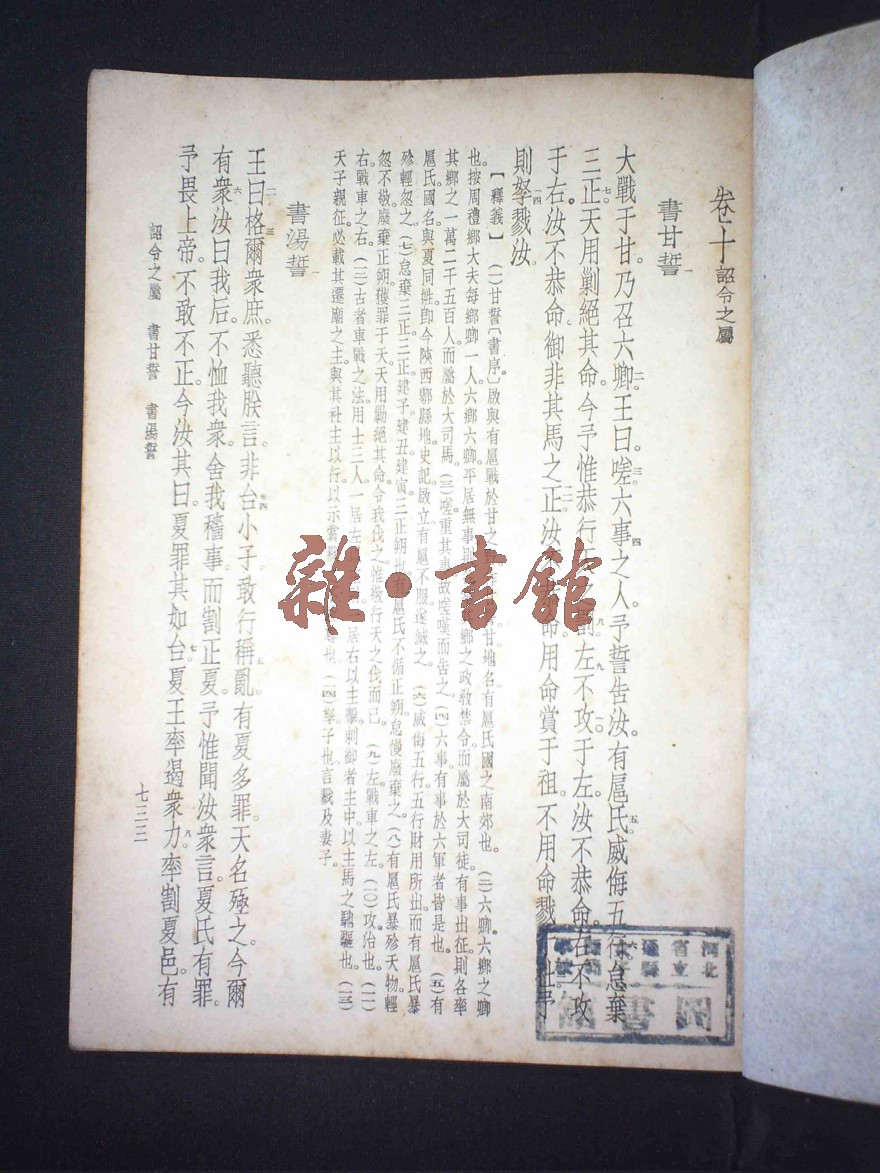 卷十 詔令之屬
書甘誓 一
大戰于甘。乃召六卿。二王曰。嗟。三六事之人。四予誓告汝。有扈氏五威侮五行。六怠棄
三正。七天用剿絕其命。今予惟恭行天之罰。八左九不攻一〇于左。汝不恭命。右不攻
于右。汝不恭命。御非其馬之正。汝不恭命。用命賞于祖。不用命戮于社。予
則孥一四戮汝
【釋義】 (一)甘誓〔書序〕啟與有扈戰於甘之野作甘誓甘地名有扈氏國之南郊也。(二)六卿六鄉之卿
也。按周禮鄉大夫每鄉卿一人六鄉六卿平居無事則各掌其鄉之政教禁令而屬於大司徒。有事出征則各率
其鄉之一萬二千五百人而屬於大司馬。(三)嗟重其事故嗟嘆而告之。(四)六事有事於六軍者皆是也。(五)有
扈氏國名與夏同姓卽今陝西鄠縣地史記啟立有扈不服遂滅之。(六)威侮五行五行財用所出。而有扈氏暴
殄輕忽之。(七)怠棄三正三正建子建丑建寅三正朔也有扈氏不循正朔。怠慢廢棄之。(八)有扈氏暴殄天物輕
忽不敬。廢棄正朔獲罪于天天用勦絕其命令我伐之。惟敬行天之伐而已 (九)左戰車之左。(一〇)攻治也。(一一)
右戰車之右。(一二)古者車戰之法用士三人。一居左以主射居右以主擊刺御者主中。以主馬之驅驅也。(一三)
天子親征。必載其遷廟之主與其社主以行。以示賞 也。(一四)孥子也言戮及妻子。
書湯誓 一
王曰。二格三爾衆庶。悉聽朕言。非台四小子。敢行稱五亂。有夏多罪。天名殛之。今爾
有衆。六汝曰。我后。不恤我衆。舍我穡事。而割正夏。予惟聞汝衆言。夏氏有罪。
予畏上帝。不敢不正今汝其曰。夏罪其如台。七夏王率遏衆力。八率割夏邑。有
詔令之屬 書甘誓 書湯誓
七三三
雜·書館
河北省通縣
圖書館